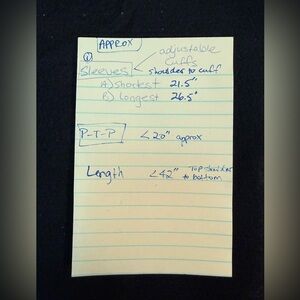 APPROX
adjustable
Cuffs
Sleeves
shoulder to cuff
A) shortest 21.5"
B) Longest 26.5"
P-T-P <20" approx
Length <42" Top shoulder
to bottom